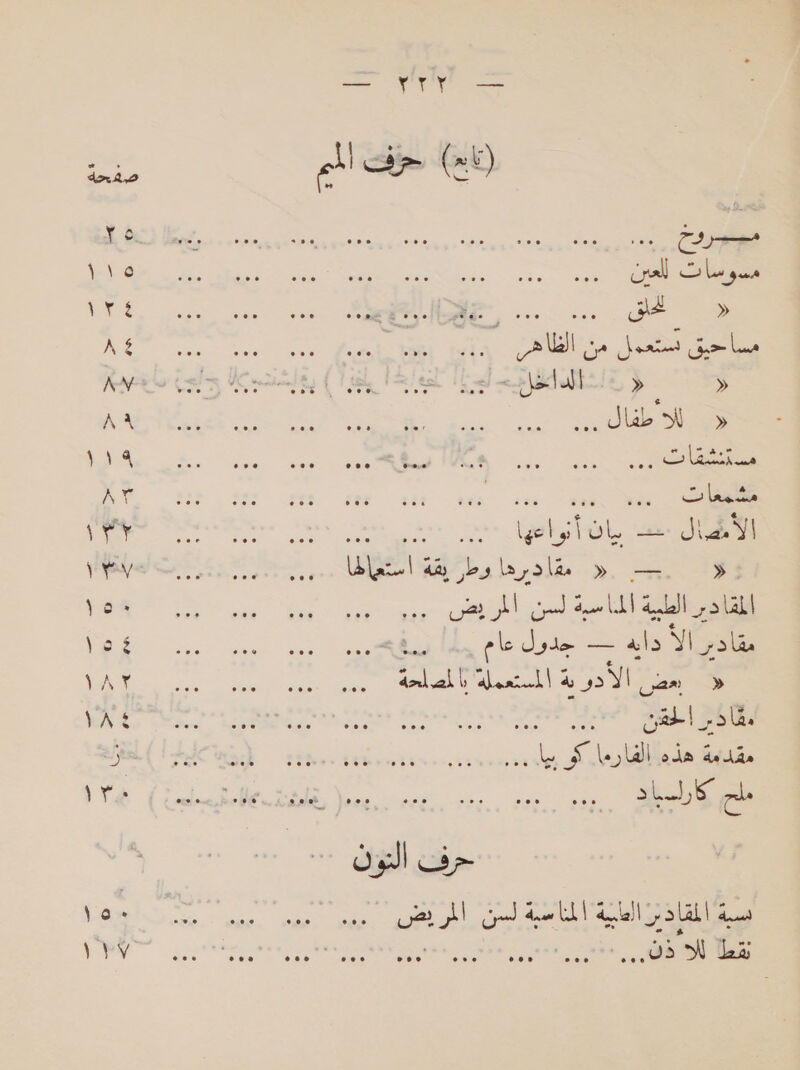 — ٢٢٢ —
(تابع) حرف الميم
صفحة
مروخ ... ... ... ... ... ... ... ... ... ٢٥
مسوسات للعين ... ... ... ... ... ... ... ... ١١٥
« للحلق ... ... ... ... ... ... ... ... ١٢٤
مساحيق تستعمل من الظاهر ... ... ... ... ... ... ٨٤
« « الداخل ... ... ... ... ... ... ٨٧
« للأطفال ... ... ... ... ... ... ... ... ٨٩
مستنشقات ... ... ... ... ... ... ... ... ... ١١٩
مشمعات ... ... ... ... ... ... ... ... ... ٨٣
الأمصال — بيان أنواعها ... ... ... ... ... ... ١٣٢
« — « مقاديرها وطريقة استعمالها ... ... ... ١٣٧
المقادير الطبية المناسبة لسن المريض ... ... ... ... ... ١٥٠
مقادير الأدايه — جدول عام ... ... ... ... ... ١٥٤
« بعض الأدوية المستعملة بالمصلحة ... ... ... ... ١٨٢
مقادير الحقن ... ... ... ... ... ... ... ... ١٨٤
مقدمة هذه الفارما كوبيا ... ... ... ... ... ... ... ز
ملح كارلسباد ... ... ... ... ... ... ... ... ١٣٠
حرف النون
نسبة المقادير الطبية المناسبة لسن المريض ... ... ... ... ١٥٠
نقط للأذن ... ... ... ... ... ... ... ... ... ١١٧